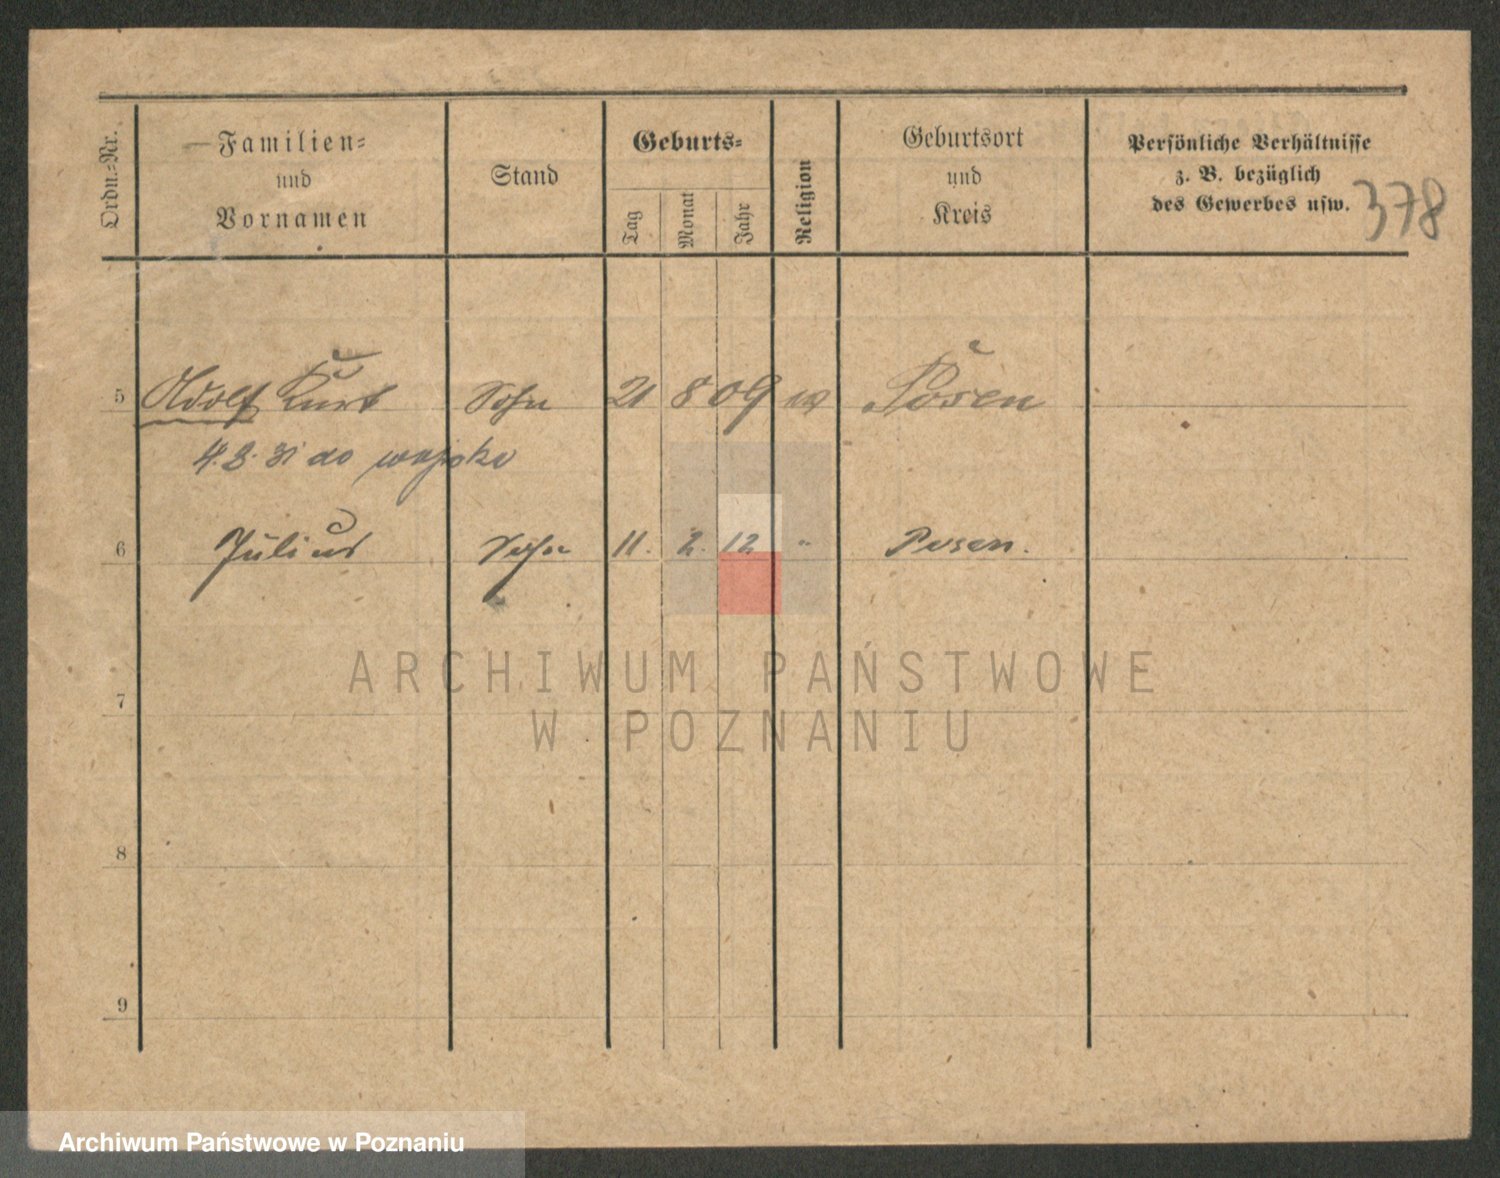 Ordn.-Nr.
Familien-
und
Vornamen
Stand
Geburts-
Tag
Monat
Jahr
Religion
Geburtsort
und
Kreis
Persönliche Verhältnisse
z. B. bezüglich
des Gewerbes usw.
378
5 Adolf Kurt Sohn 21 8 09 Posen
4.3.31 do wojska
6 Julius Sohn 11. 2. 12 " Posen.
7
8
9
ARCHIWUM PAŃSTWOWE
W POZNANIU
Archiwum Państwowe w Poznaniu